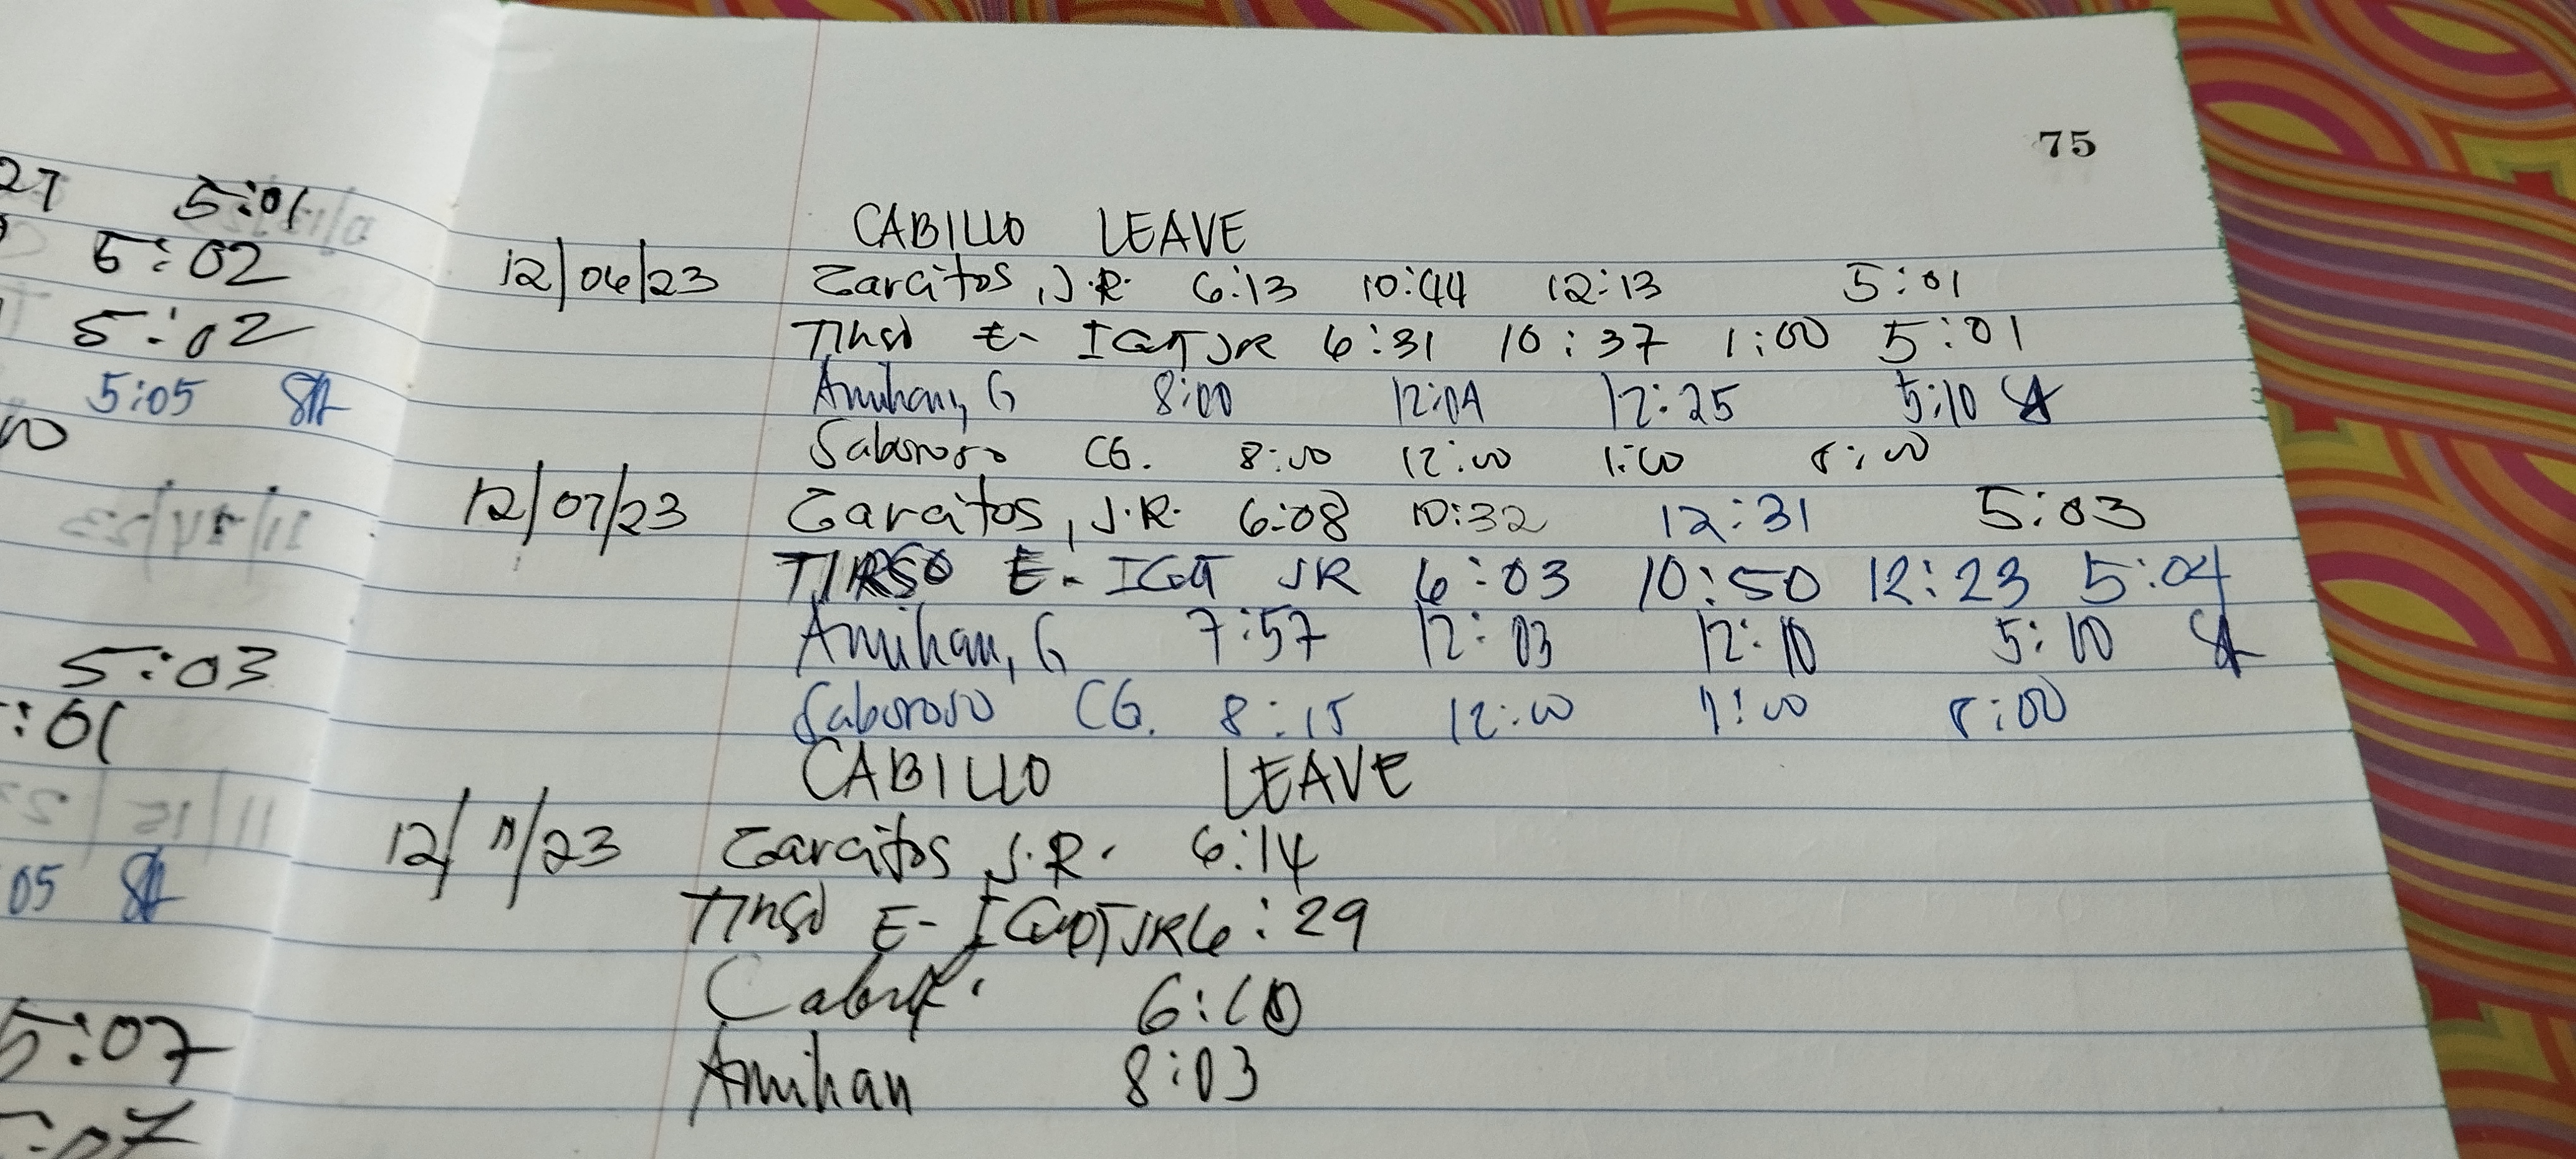 27 5:01
5:02
5:02
5:05
5:03
:01
05
5:07
75
CABILLO LEAVE
12/06/23 Zarcitos, J.R. 6:13 10:44 12:13 5:01
TIRSO E- IGOT JR 6:31 10:37 1:00 5:01
Amihan, G 8:00 12:04 12:25 5:10
Saboroso CG. 8:00 12:00 1:00 5:00
12/07/23 Zarcitos, J.R. 6:08 10:32 12:31 5:03
TIRSO E- IGOT JR 6:03 10:50 12:23 5:04
Amihan, G 7:57 12:03 12:10 5:10
Saboroso CG. 8:15 12:00 1:00 5:00
CABILLO LEAVE
12/11/23 Zarcitos J.R. 6:14
TIRSO E- IGOT JR 6:29
6:10
Amihan 8:03